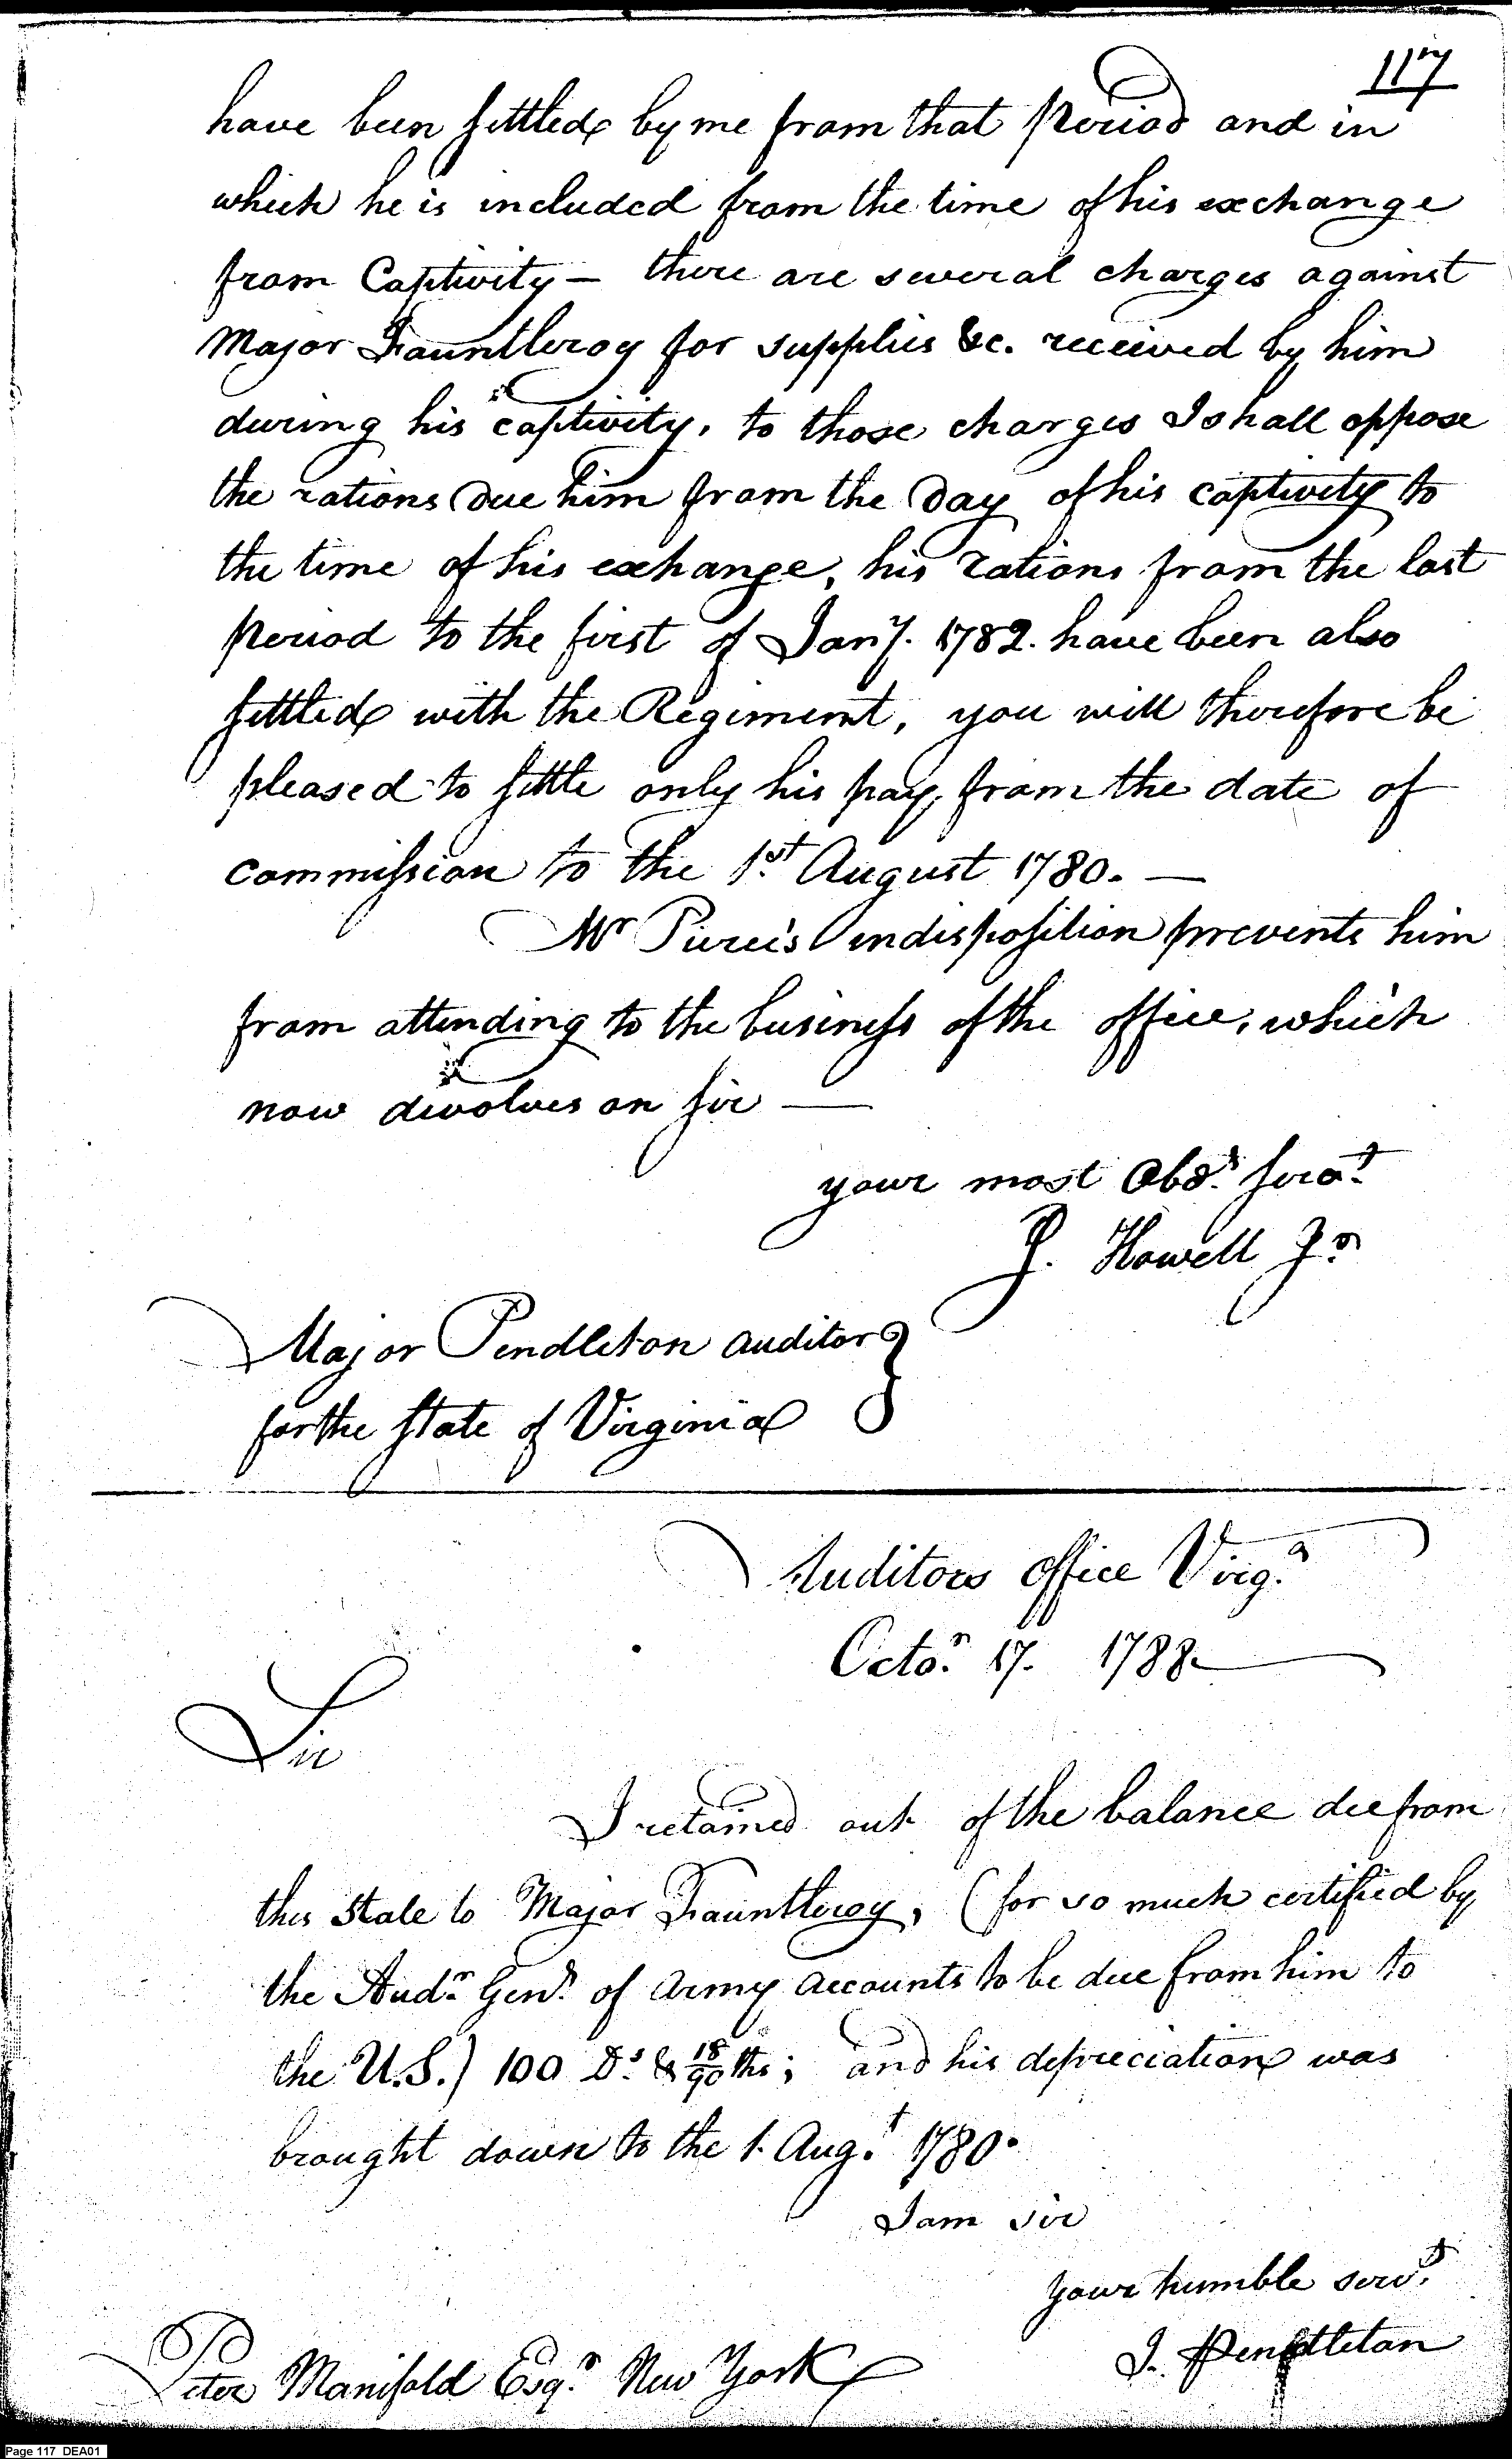 117
have been settled by me from that Period and in
which he is included from the time of his exchange
from Captivity — there are several charges against
Major Fauntleroy for supplies &c. received by him
during his captivity, to those charges I shall oppose
the rations due him from the Day of his captivity to
the time of his exchange, his rations from the last
Period to the first of Jany. 1782. have been also
settled with the Regiment, you will therefore be
pleased to settle only his pay, from the date of
commission to the 1st. August 1780. —
Mr Pierce's indisposition prevents him
from attending to the business of the office, which
now devolves on sir —
your most Obdt. servt.
J. Howell Jr.
Major Pendleton auditor }
for the State of Virginia
Auditors office Virga.
Octor. 17. 1788.
Sir
I retained out of the balance due from
this State to Major Fauntleroy, (for so much certified by
the Audr. Genl. of Army accounts to be due from him to
the U.S.) 100 Ds. & 18/90ths; and his depreciation was
brought down to the 1. Augt. 1780.
I am sir
your humble servt.
J. Pendleton
Peter Manifold Esqr. New York
Page 117 DEA01